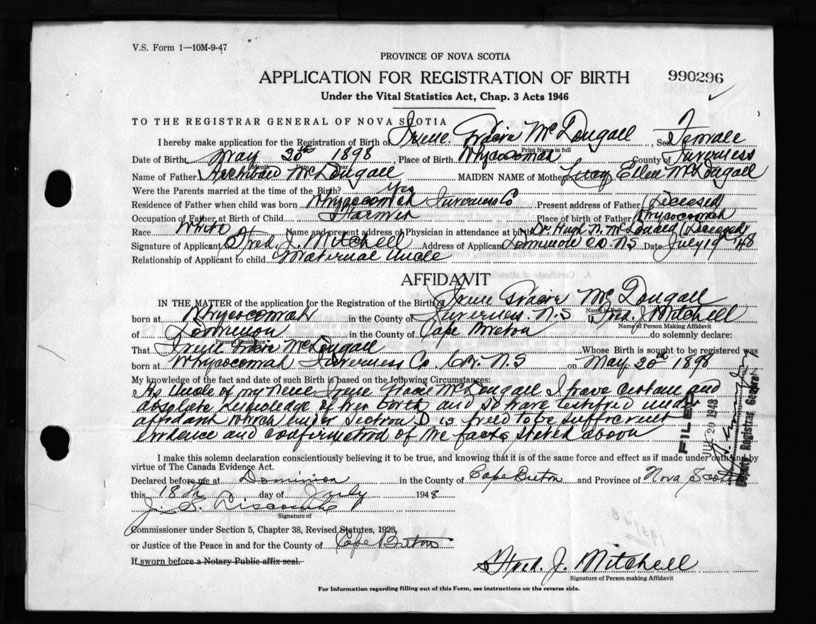 V.S. Form 1—10M-9-47
PROVINCE OF NOVA SCOTIA
APPLICATION FOR REGISTRATION OF BIRTH 990296
Under the Vital Statistics Act, Chap. 3 Acts 1946
TO THE REGISTRAR GENERAL OF NOVA SCOTIA
I hereby make application for the Registration of Birth of Irene Grace McDougall, Sex Female
Print Name in full
Date of Birth May 20th 1898, Place of Birth Whycocomah County of Inverness
Name of Father Archibald McDougall MAIDEN NAME of Mother Lucy Ellen McDougall
Were the Parents married at the time of the Birth? Yes
Residence of Father when child was born Whycocomah Inverness Co Present address of Father (Deceased)
Occupation of Father at Birth of Child Farmer Place of birth of Father Whycocomah
Race White Name and present address of Physician in attendance at birth Dr. Hugh N. McDonald (Deceased)
Signature of Applicant Fred. J. Mitchell Address of Applicant Dominion C.B. N.S Date July 19th 48
Relationship of Applicant to child Maternal Uncle
AFFIDAVIT
IN THE MATTER of the application for the Registration of the Birth of Irene Grace McDougall
born at Whycocomah in the County of Inverness N.S I, Fred. J. Mitchell
Name of Person Making Affidavit
of Dominion in the County of Cape Breton do solemnly declare:
Present Residence
That Irene Grace McDougall Whose Birth is sought to be registered was
born at Whycocomah Inverness Co. C.B. N.S on May 20th 1898
My knowledge of the fact and date of such Birth is based on the following Circumstances:
As Uncle of my Niece Irene Grace McDougall I have certain and
absolute knowledge of her birth and I have certified under
affidavit which under Section D is to be sufficient
evidence and confirmation of the facts stated above
I make this solemn declaration conscientiously believing it to be true, and knowing that it is of the same force and effect as if made under oath and by
virtue of The Canada Evidence Act.
Declared before me at Dominion in the County of Cape Breton and Province of Nova Scotia
this 18th day of July 1948
Signature of
Commissioner under Section 5, Chapter 38, Revised Statutes, 1923,
or Justice of the Peace in and for the County of Cape Breton
If sworn before a Notary Public affix seal.
Fred. J. Mitchell
Signature of Person making Affidavit
For Information regarding filling out of this Form, see instructions on the reverse side.
FILED
JUL 20 1948
Deputy Registrar General